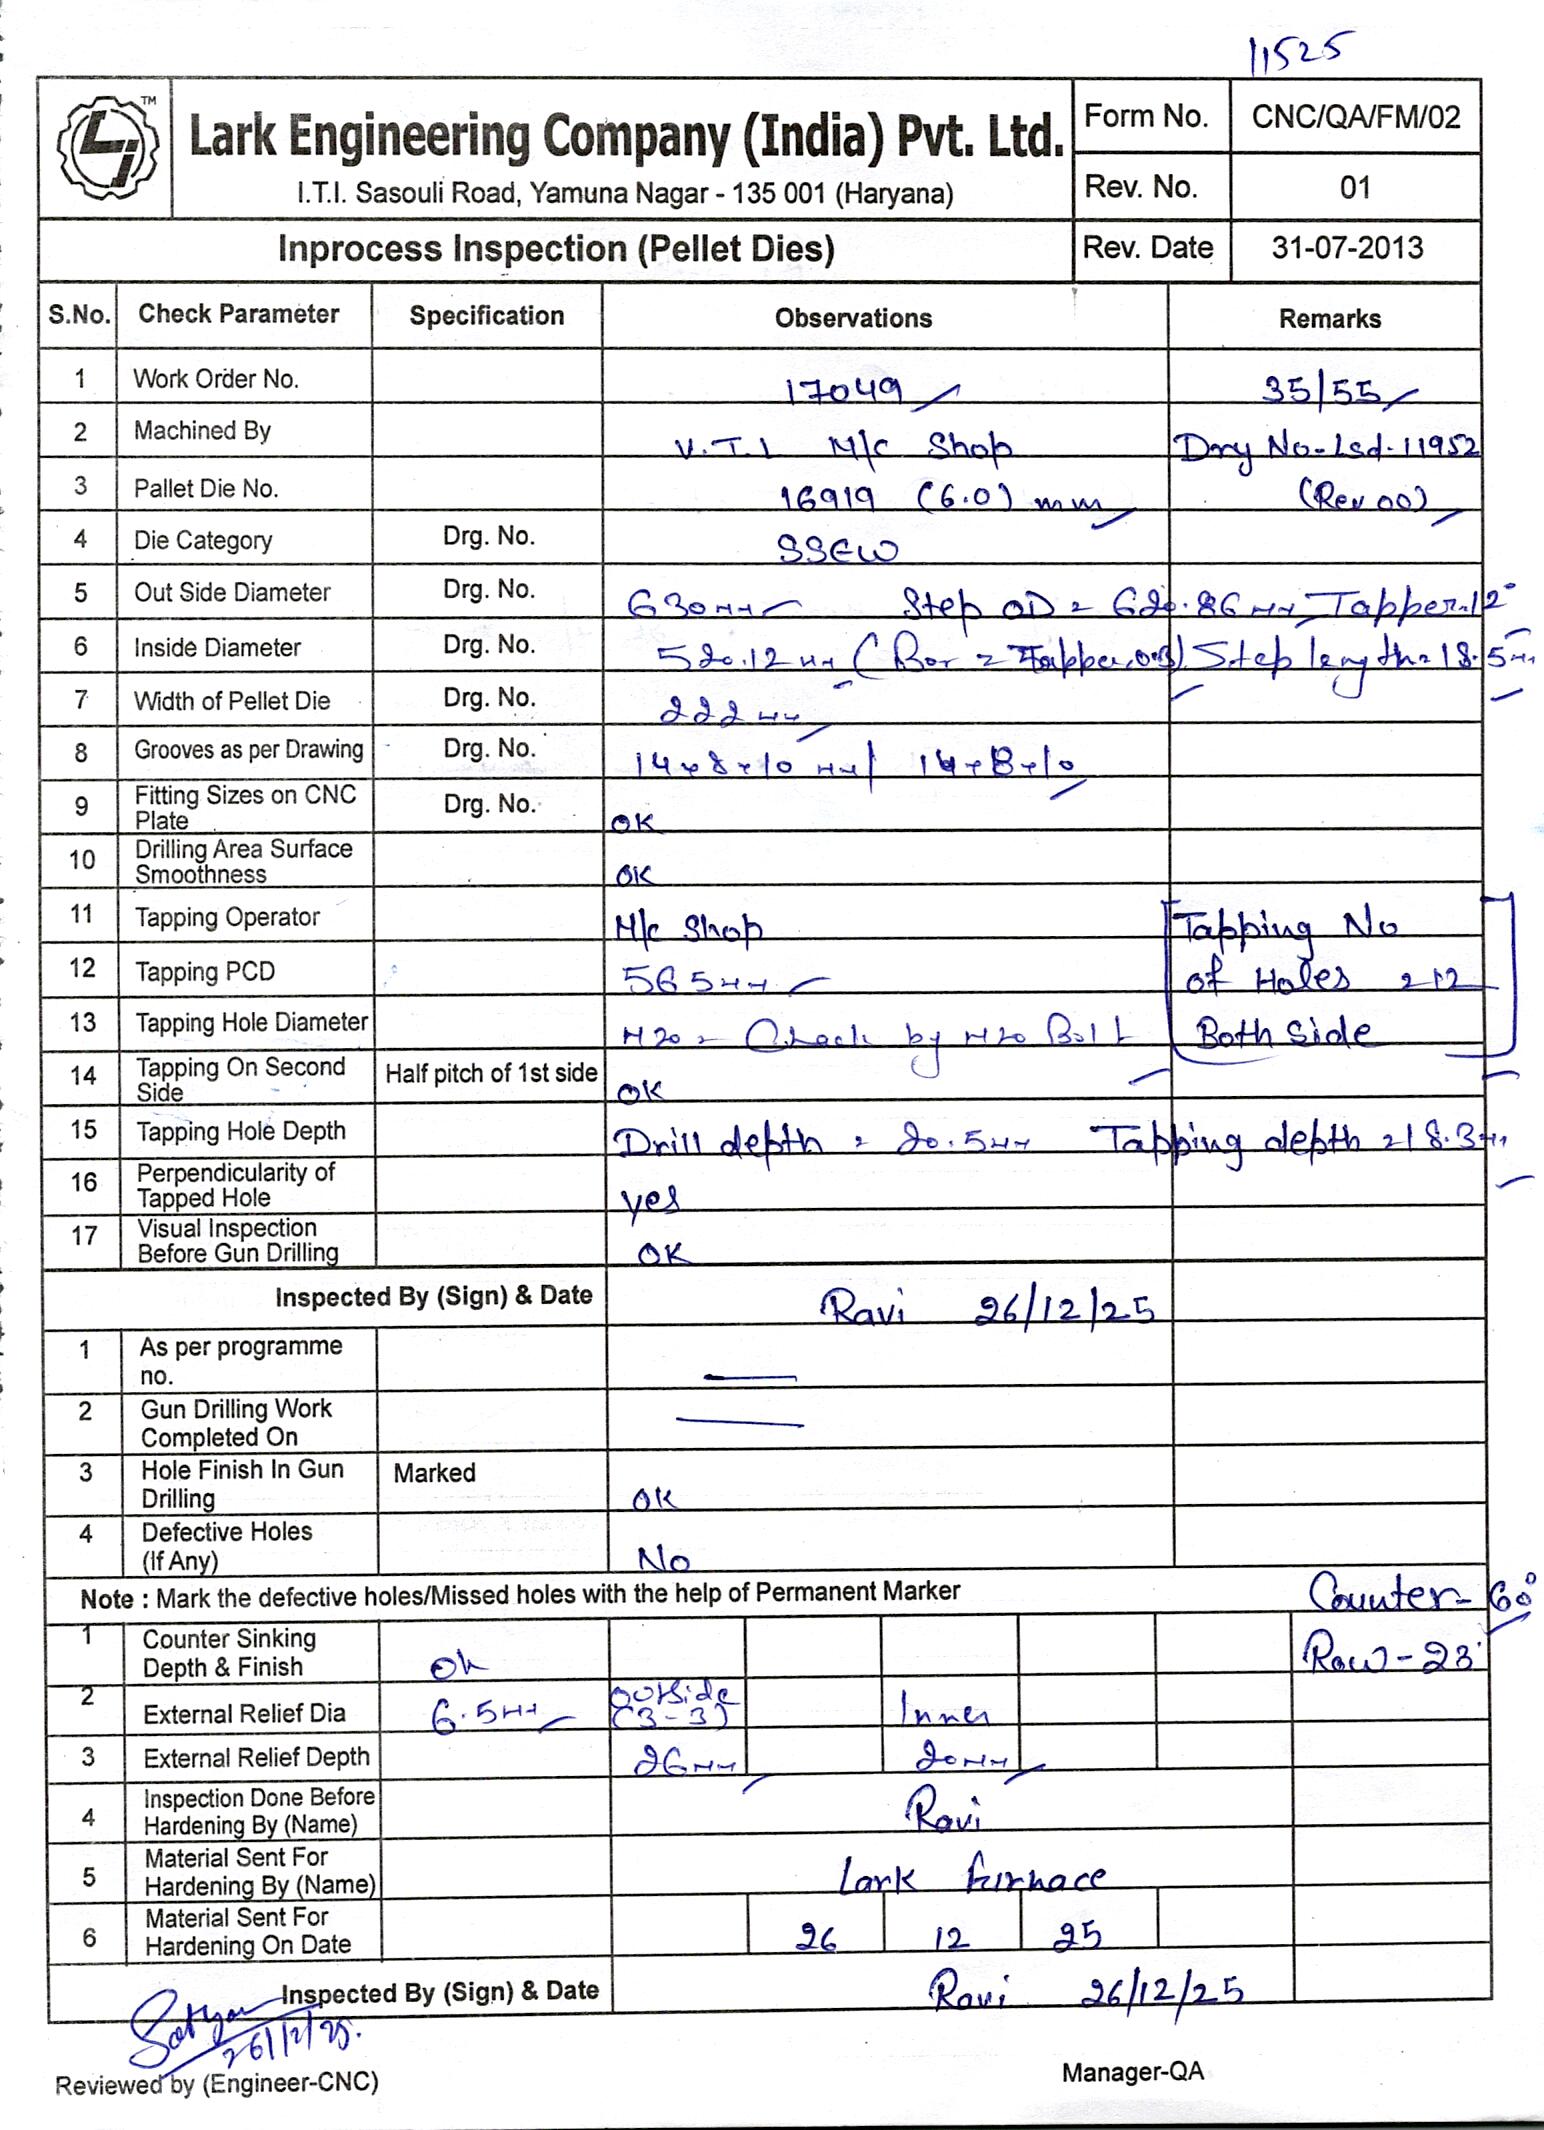 11525
LJ TM
Lark Engineering Company (India) Pvt. Ltd.
I.T.I. Sasouli Road, Yamuna Nagar - 135 001 (Haryana)
Form No. CNC/QA/FM/02
Rev. No. 01
Inprocess Inspection (Pellet Dies) Rev. Date 31-07-2013
S.No. Check Parameter Specification Observations Remarks
1 Work Order No. 17049 35/55
2 Machined By V.T.L M/c Shop Drg No-Lsd-11952
3 Pallet Die No. 16919 (6.0) mm (Rev 00)
4 Die Category Drg. No. SSEW
5 Out Side Diameter Drg. No. 630mm Step OD = 620.86mm Tapper-12°
6 Inside Diameter Drg. No. 520.12mm (Bor = Tapper 0.3) Step length = 18.5mm
7 Width of Pellet Die Drg. No. 222mm
8 Grooves as per Drawing Drg. No. 14x8x10 mm / 14x8x10
9 Fitting Sizes on CNC Plate Drg. No. OK
10 Drilling Area Surface Smoothness OK
11 Tapping Operator M/c Shop Tapping No
12 Tapping PCD 565mm of Holes = 12
13 Tapping Hole Diameter M20 = Check by M20 Bolt Both Side
14 Tapping On Second Side Half pitch of 1st side OK
15 Tapping Hole Depth Drill depth = 20.5mm Tapping depth = 18.3mm
16 Perpendicularity of Tapped Hole yes
17 Visual Inspection Before Gun Drilling OK
Inspected By (Sign) & Date Ravi 26/12/25
1 As per programme no. —
2 Gun Drilling Work Completed On —
3 Hole Finish In Gun Drilling Marked OK
4 Defective Holes (If Any) No
Note : Mark the defective holes/Missed holes with the help of Permanent Marker Counter- 60°
1 Counter Sinking Depth & Finish Ok Row-23
2 External Relief Dia 6.5mm outside (3-3) Inner
3 External Relief Depth 26mm 20mm
4 Inspection Done Before Hardening By (Name) Ravi
5 Material Sent For Hardening By (Name) Lark furnace
6 Material Sent For Hardening On Date 26 12 25
Inspected By (Sign) & Date Ravi 26/12/25
26/12/25.
Reviewed by (Engineer-CNC) Manager-QA